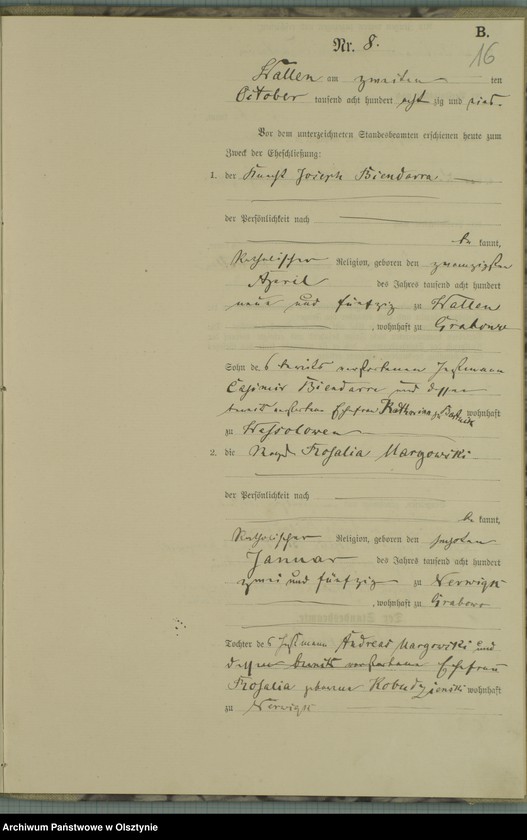 B.
Nr. 8.
16
Wallen am zweiten ten
October tausend acht hundert achtzig und vier.
Vor dem unterzeichneten Standesbeamten erschienen heute zum
Zweck der Eheschließung:
1. der Knecht Joseph Biendarra
der Persönlichkeit nach
be kannt,
katholischer Religion, geboren den zwanzigsten
April des Jahres tausend acht hundert
neun und fünfzig zu Wallen
, wohnhaft zu Grabowo
Sohn des bereits verstorbenen Instmann
Casimir Biendarra und dessen
bereits verstorbene Ehefrau Katharina wohnhaft
zu Wessolowen
2. die Magd Rosalia Margowski
der Persönlichkeit nach
be kannt,
katholischer Religion, geboren den
Januar des Jahres tausend acht hundert
zwei und fünfzig zu Nerwigk
, wohnhaft zu Grabowo
Tochter des Instmann Andreas Margowski und
dessen bereits verstorbene Ehefrau
Rosalia geborene wohnhaft
zu Nerwigk
Archiwum Państwowe w Olsztynie